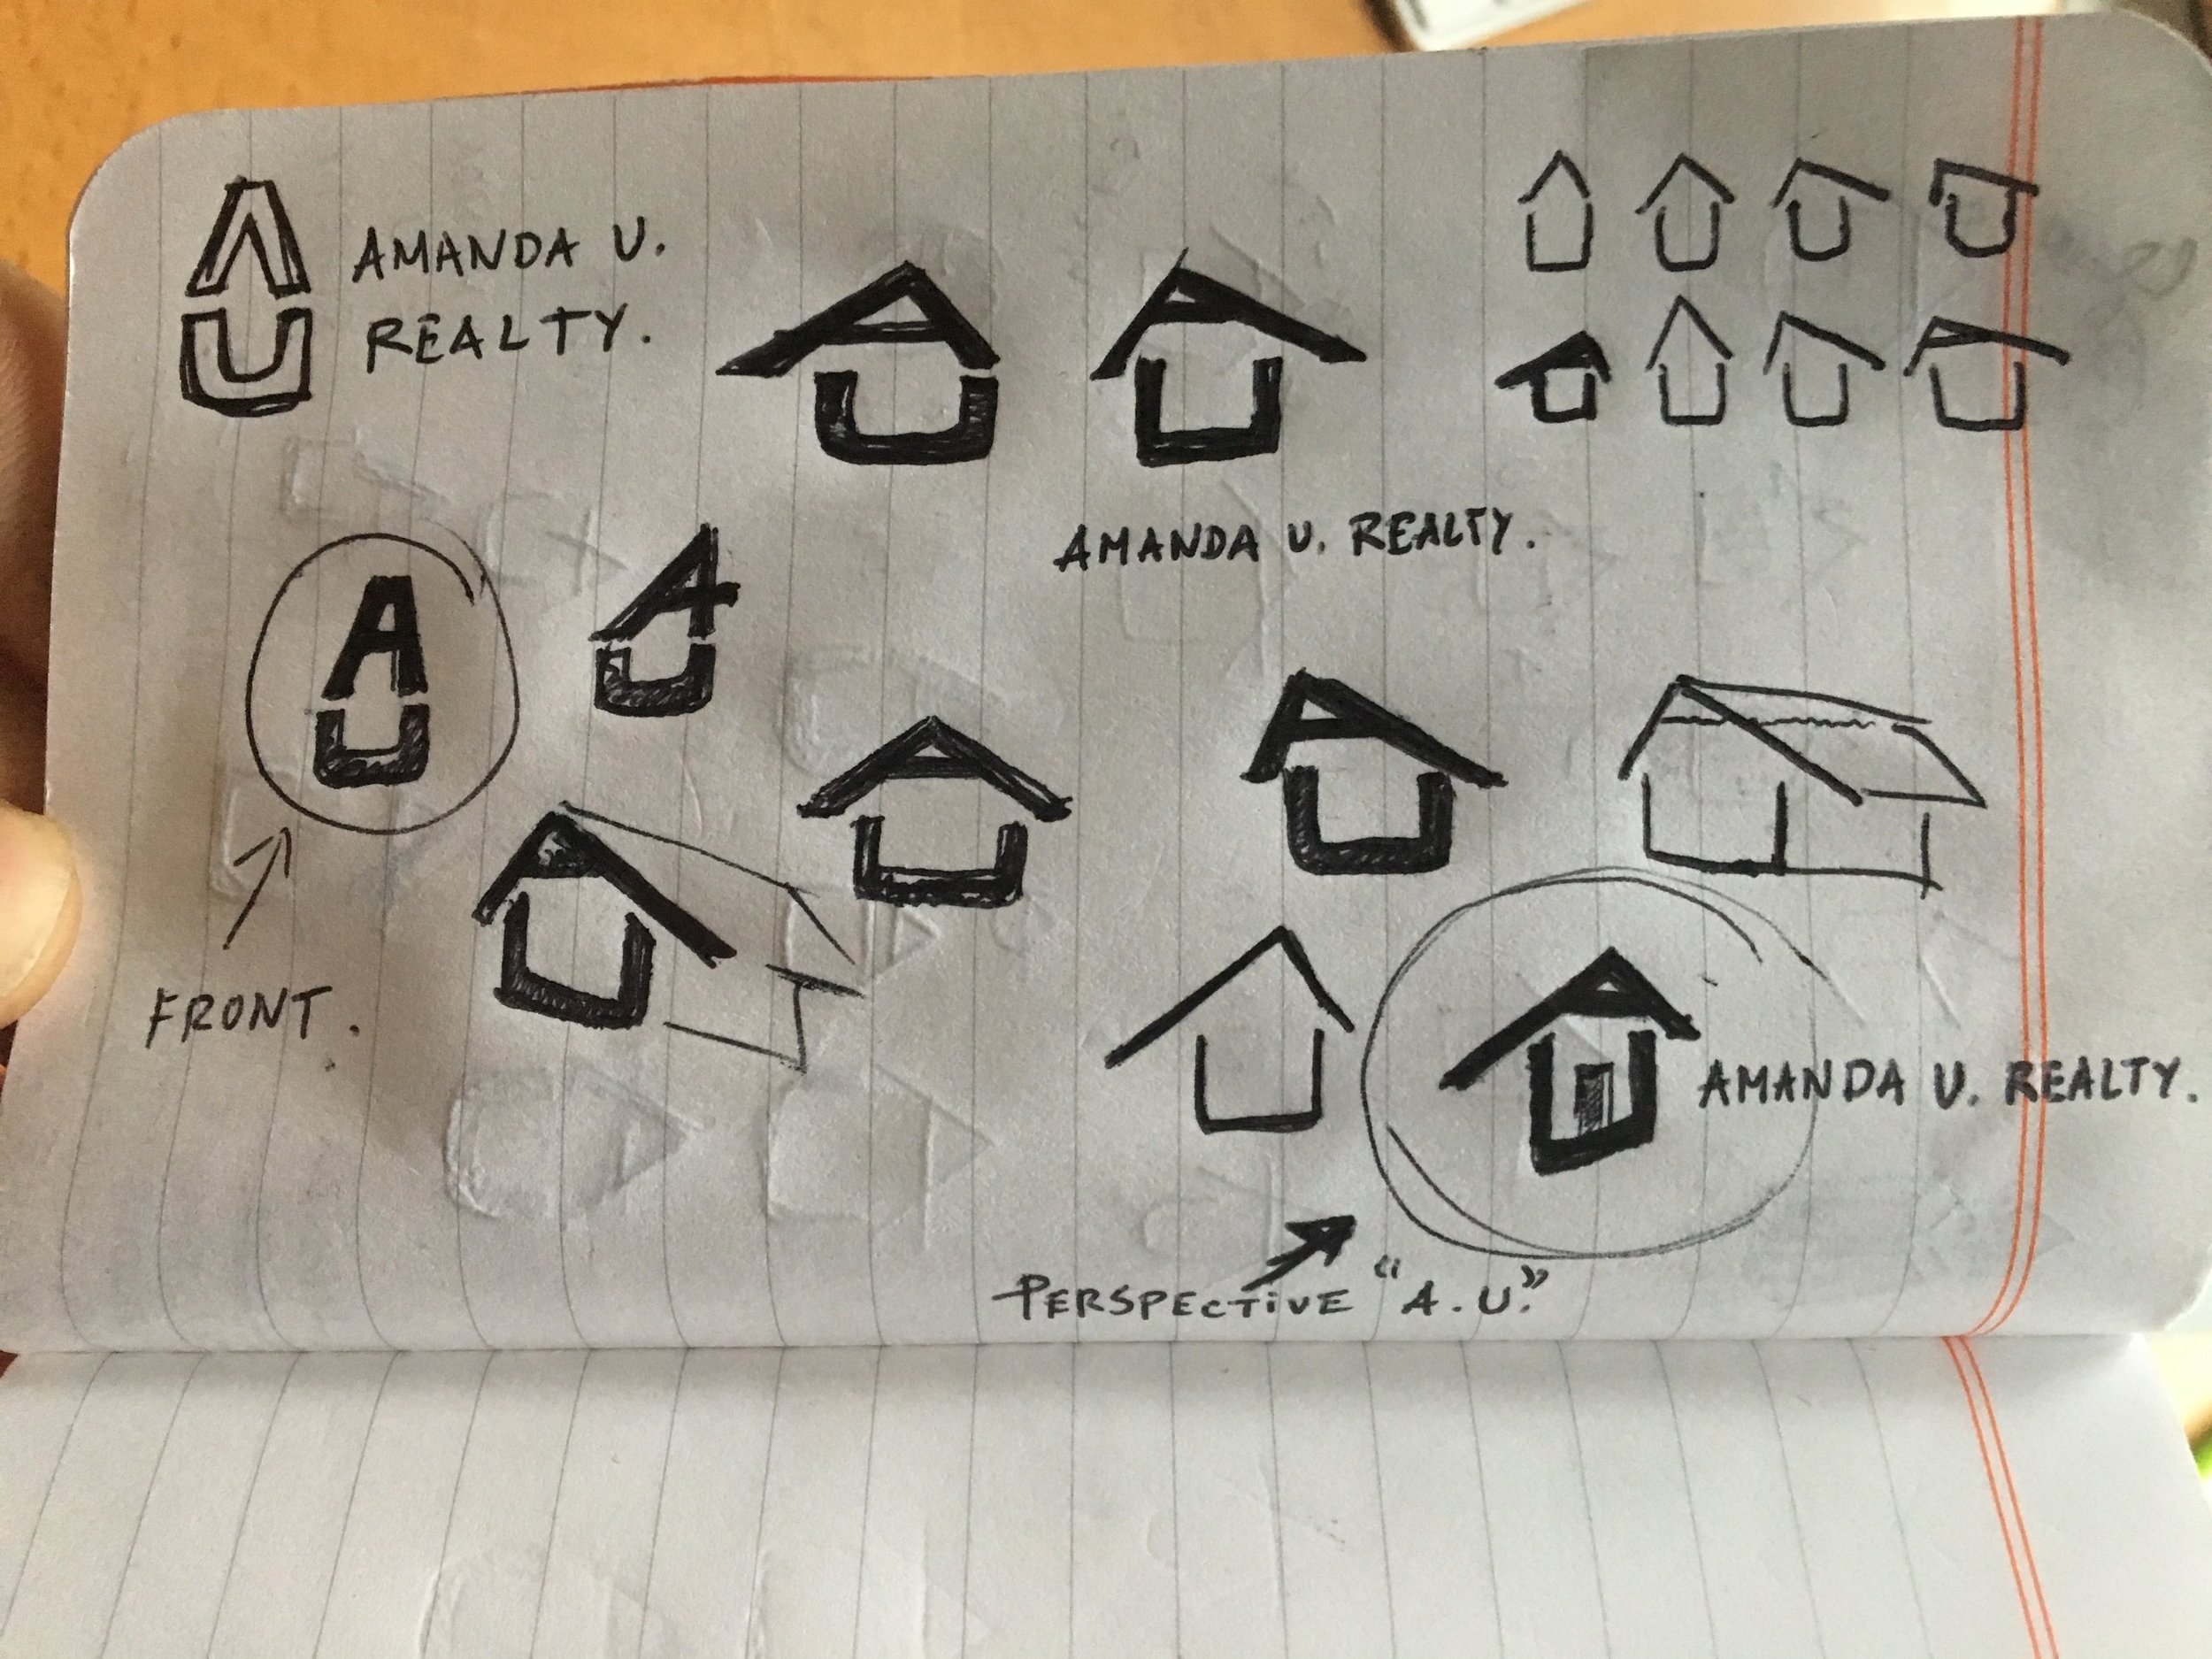 AMANDA U.
REALTY.
AMANDA U. REALTY.
A
U
FRONT.
AMANDA U. REALTY.
PERSPECTIVE "A.U."